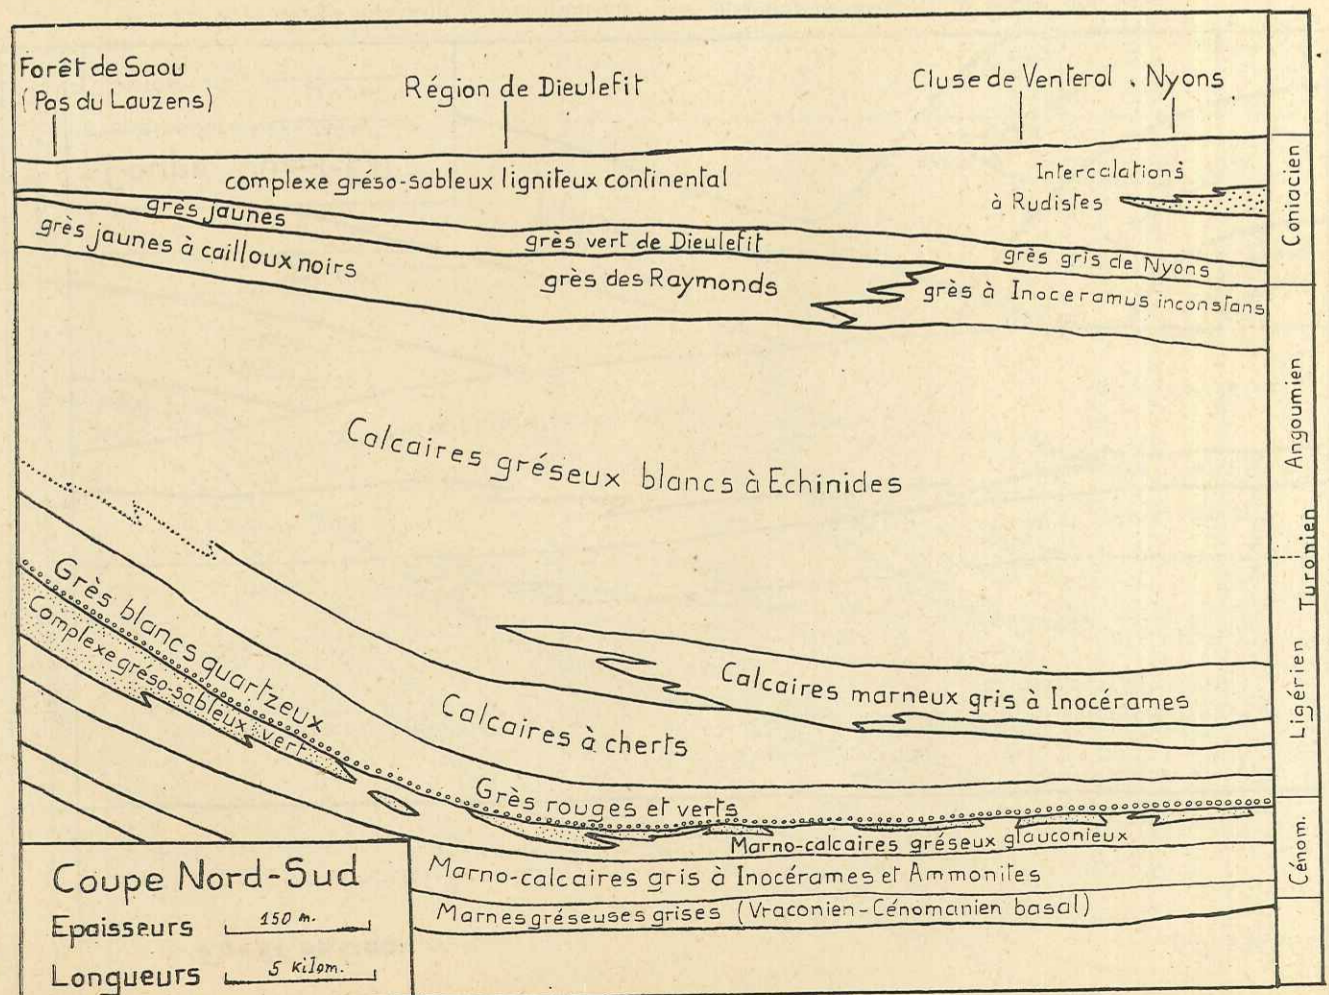 Forêt de Saou
(Pas du Lauzens)
Région de Dieulefit
Cluse de Venterol . Nyons
complexe gréso-sableux ligniteux continental
Intercalations
à Rudistes
grès jaunes
grès vert de Dieulefit
grès gris de Nyons
grès jaunes à cailloux noirs
grès des Raymonds
grès à Inoceramus inconstans
Calcaires gréseux blancs à Echinides
Grès blancs quartzeux
Complexe gréso-sableux vert
Calcaires marneux gris à Inocérames
Calcaires à cherts
Grès rouges et verts
Marno-calcaires gréseux glauconieux
Marno-calcaires gris à Inocérames et Ammonites
Marnes gréseuses grises (Vraconien-Cénomanien basal)
Coniacien
Angoumien
Turonien
Ligérien
Cénom.
Coupe Nord-Sud
Epaisseurs 150 m.
Longueurs 5 Kilom.